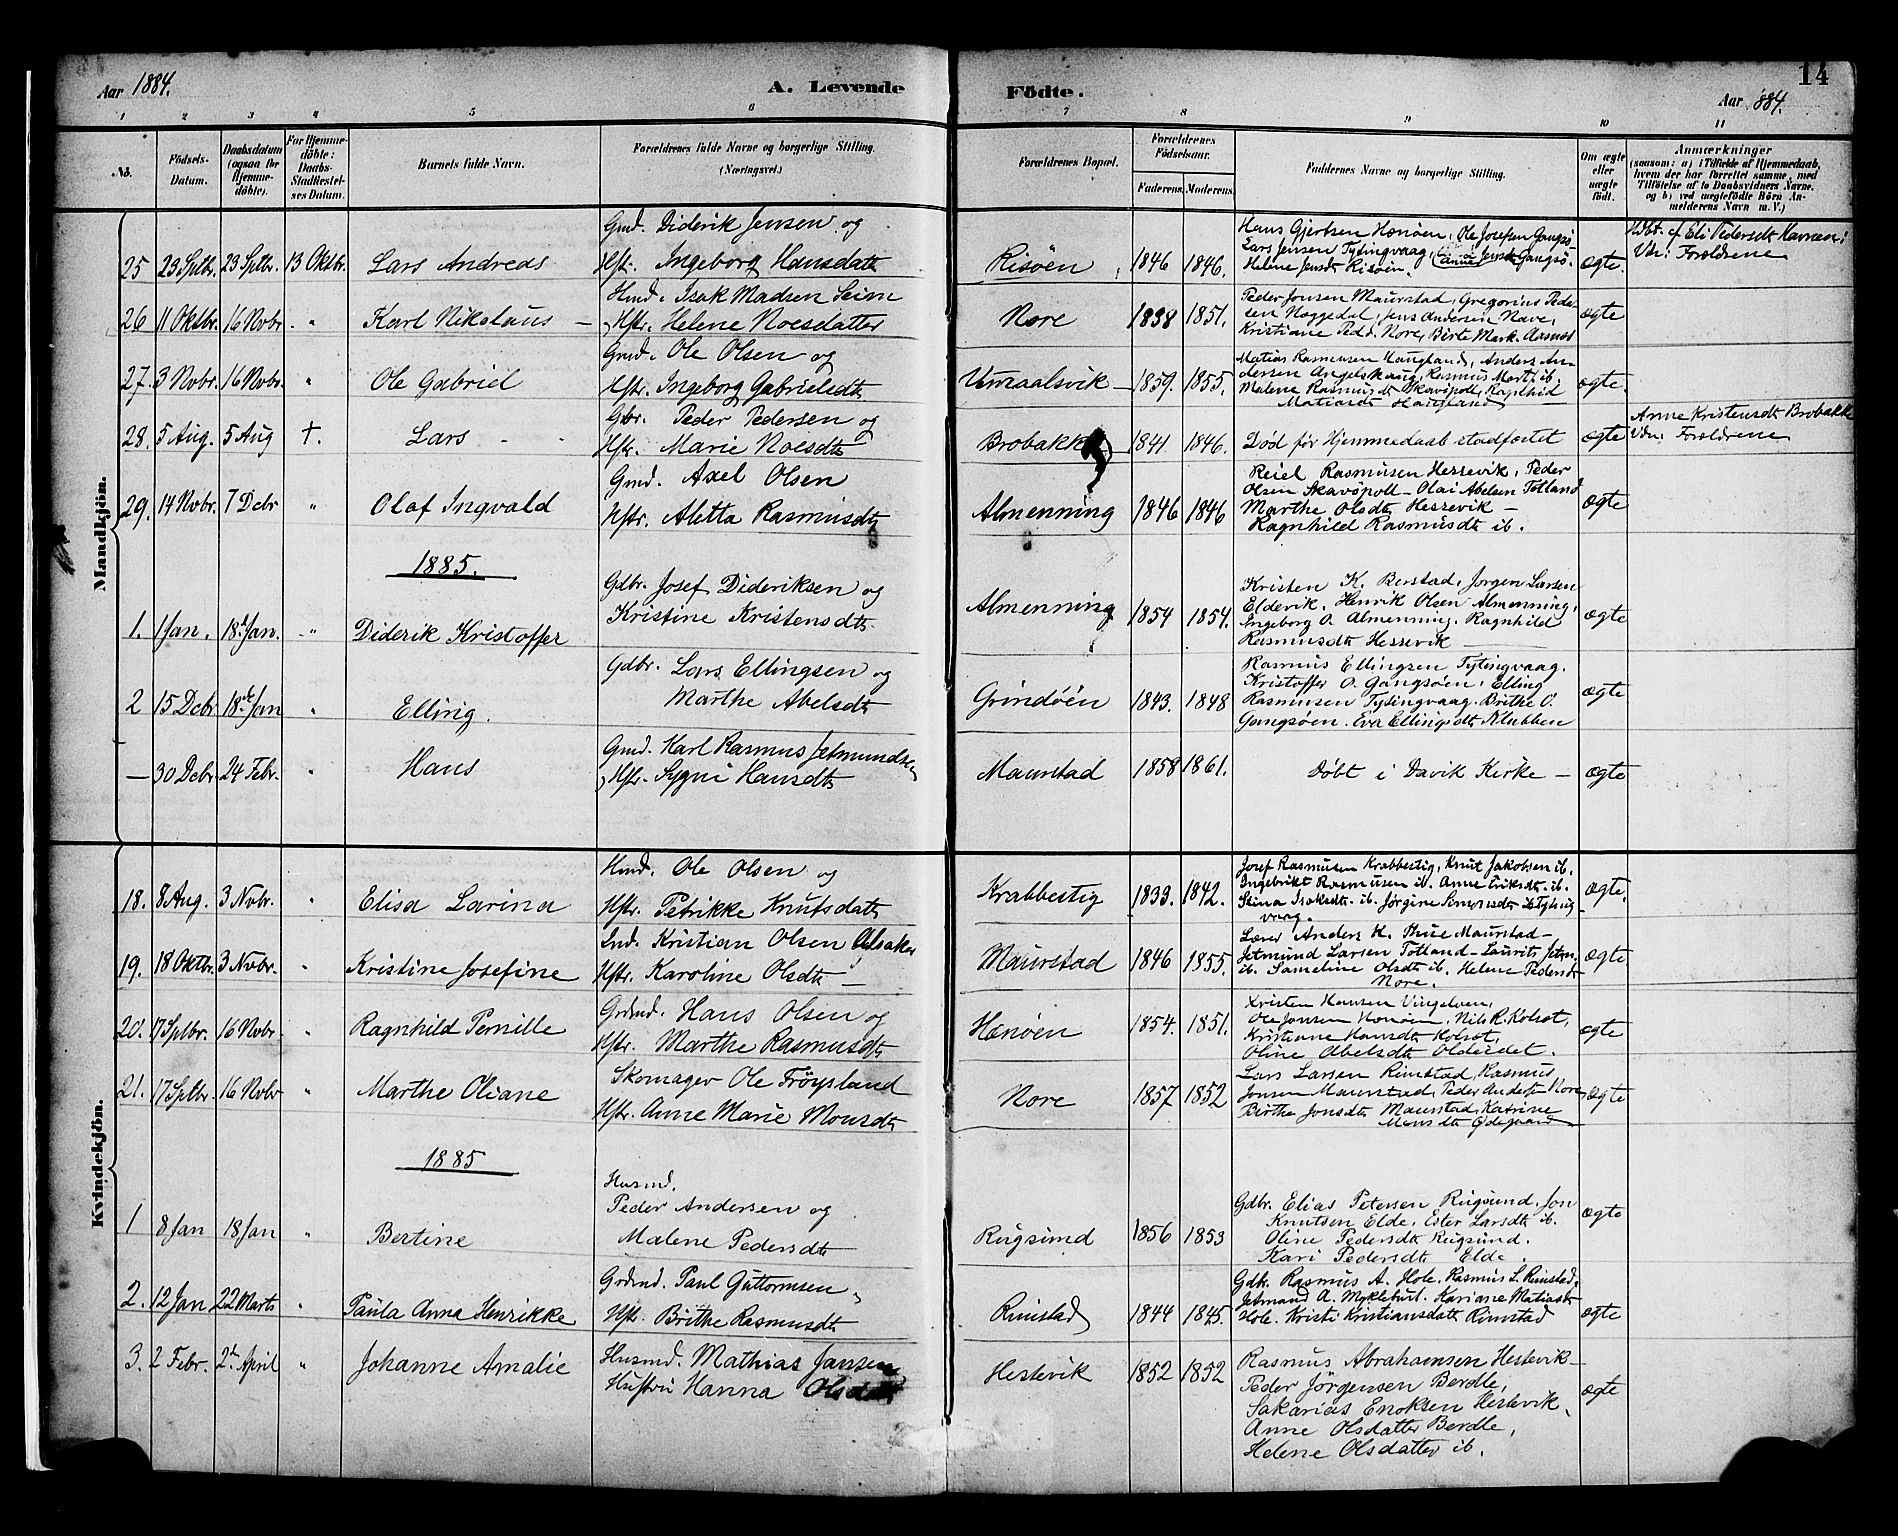 Aar 1884.
A. Levende Födte.
14
Aar 1884.
1 2 3 4 5 6 7 8 9 10 11
No.
Födsels-Datum.
Daabsdatum (ogsaa for Hjemmedöbte).
For Hjemmedöbte: Daabs-Stadfestelses Datum.
Barnets fulde Navn.
Forældrenes fulde Navne og borgerlige Stilling.
(Næringsvei.)
Forældrenes Bopæl.
Forældrenes Födselsaar.
Faderens. Moderens.
Faddernes Navne og borgerlige Stilling.
Om ægte eller uægte födt.
Anmærkninger
(saasom: a) i Tilfælde af Hjemmedaab, hvem der har forrettet samme, med Tilföielse af to Daabsvidners Navne, og b) ved uægtefödte Börn Anmelderens Navn m. V.)
Mandkjön.
25 23 Sptbr. 23 Sptbr. 13 Oktbr. Lars Andreas
Gmd. Diderik Jensen og
Hst. Ingeborg Hansdatt
Risöen 1846 1846.
Hans Gjertsen Hænöen, Ole Josefsen Gangsö
Lars Jensen Tytingvaag,
Helene Jensdt Risöen.
ægte.
Hdbt. af Eli Pedersdt
Vdn: Forældrene
26 11 Oktbr. 16 Novbr. " Karl Nikolaus
Hmd. Isak Madsen Seim
Hstr. Helene Noesdatter
Nore 1838 1851.
Peder Jonsen Maurstad, Gregorius Peder-
sen Noggedal, Jens Andersen Nave,
Kristiane Ped.d. Nore, Birte Mark.
ægte
27. 3 Novbr. 16 Novbr. " Ole Gabriel
Gmd. Ole Olsen og
Hstr. Ingeborg Gabrielsdt
1859. 1855.
Matias Rasmusen Haugland, Anders An-
dersen Angelskaug, Rasmus Mart. ib.
Malene Rasmusdt Skavöpoll, Ragnhild
Matiasdt Haugland
ægte.
28. 5 Aug. 5 Aug †. Lars
Gbr. Peder Pedersen og
Hstr. Marie Noesdt
Brobakke 1841 1846.
Död för Hjemmedaab stadfæstet
ægte
Anne Kristensdt Brobakke
Vdn: Forældrene
29. 14 Novbr. 7 Decbr " Olaf Ingvald
Gmd. Axel Olsen
Hstr. Aletta Rasmusdt
Almenning 1846 1846
Reiel Rasmusen Hessevik, Peder
Olsen Skavöpoll - Olai Abelsen Totland
Marthe Olsdt Hessevik -
Ragnhild Rasmusdt ib.
ægte
1885.
1. 1 Jan. 18d Jan. " Diderik Kristoffer
Gdbr. Josef Dideriksen og
Kristine Kristensdt
Almenning 1854 1854.
Kristen K. Berstad, Jorgen Larsen
Eldevik. Henrik Olsen Almenning,
Ingeborg O. Almenning. Ragnhild
Rasmusdt Hessevik
ægte
2 15 Debr 18de Jan " Elling.
Gdbr. Lars Ellingsen og
Marthe Abelsdt
Grindöen 1843. 1848
Rasmus Ellingsen Tytingvaag.
Kristoffer O. Gangsöen, Elling
Rasmusen Tytingvaag. Brithe O.
Gangsöen. Eva Ellingsdt Klubben
ægte
- 30 Debr 24 Febr. " Hans
Gmd. Karl Rasmus Jetmundsen
Hstr. Sygni Hansdt
Maurstad 1858 1861.
Döbt i Davik Kirke -
ægte
Kvindekjön.
18. 8 Aug. 3 Novbr. " Elisa Larina
Hmd. Ole Olsen og
Hstr. Petrikke Knutsdatt
Krabbestig 1833. 1842.
Josef Rasmusen Krabbestig, Knut Jakobsen ib.
Ingebrikt Rasmusen ib. Anne Eriksdt. ib.
Stina Isaksdt. ib. Jörgine Simonsdt Tyting
vaag.
ægte.
19. 18 Oktbr. 3 Novbr. " Kristine Josefine
Ind. Kristian Olsen Aasaker
Hstr. Karoline Olsdt -
Maurstad 1846 1855.
Lærer Anders K. Thue Maurstad -
Jetmund Larsen Totland - Laurits Jetm.
ib. Sameline Olsdt ib. Helene Pedersdt
Nore.
ægte
20. 17 Sptbr. 16 Novbr. " Ragnhild Pernille
Grdmd. Hans Olsen og
Hstr. Marthe Rasmusdt
Hænöen 1854. 1851.
Kristen Hansen Vingelven,
Ole Jonsen Hænöen, Nils R. Kolsot,
Kristianne Hansdt Kolsot,
Oline Abelsdt Oldeidet.
ægte
21. 17 Sptbr. 16 Novbr " Marthe Oliane
Skomager Ole Fröysland
Hstr. Anne Marie Monsdt
Nore 1857 1852
Lars Larsen Rimstad, Rasmus
Jonsen Maurstad, Peder Anders. Nore,
Birthe Jonsdt Maurstad, Katrine
Monsdt Ödegaard
ægte
1885
1 8 Jan 18 Jan " Bertine
Husmd.
Peder Andersen og
Malene Pedersdt
Rugsund 1856 1853
Gdbr. Elias Petersen Rugsund, Jon
Knutsen Elde, Ester Larsdt ib.
Oline Pedersdt Rugsund.
Kari Pedersdt Elde.
ægte
2. 12 Jan 22 Marts " Paula Anna Henrikke
Grdmd. Paul Guttormsen
Hstr. Brithe Rasmusdt
Rimstad 1844 1845.
Gdbr. Rasmus A. Hole. Rasmus L. Rimstad.
Jetmund A. Myklebut. Kariane Matiasdt
Hole. Kristi Kristiansdatt Rimstad
ægte
3. 2 Febr. 2d April " Johanne Amalie
Husmd. Mathias Jansen
Hustru Hanna Olsdatt
Hestevik 1852 1852
Rasmus Abrahamsen Hestevik -
Peder Jörgensen Berdle,
Sakarias Enoksen Hestevik,
Anne Olsdatter Berdle,
Helene Olsdatter ib.
ægte